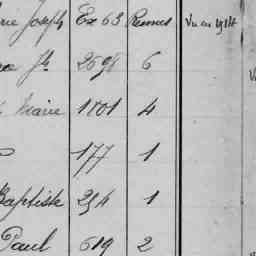 Joseph Ex 63 Rennes Vu en 1914
2698 6
Marie 1101 4
177 1
Baptiste 254 1
Paul 619 2